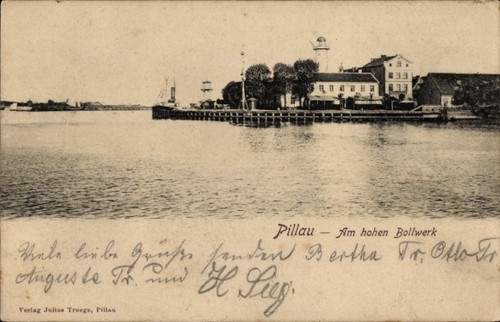 Pillau — Am hohen Bollwerk
Viele liebe Grüße senden Bertha Tr. Otto Tr
Auguste Tr. und H Sieg.
Verlag Julius Truege, Pillau